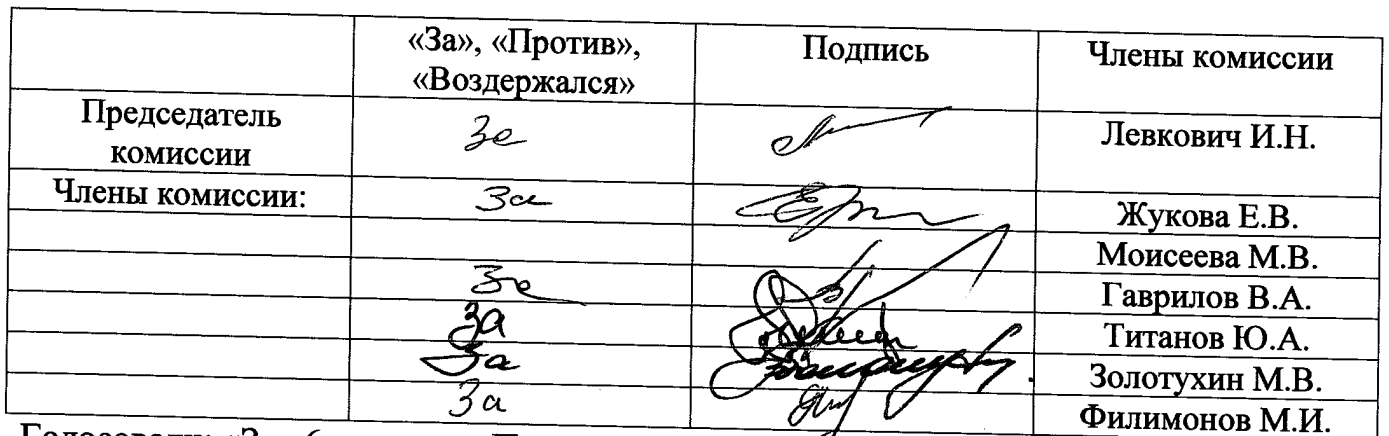 «За», «Против», «Воздержался» Подпись Члены комиссии
Председатель комиссии За Левкович И.Н.
Члены комиссии: За Жукова Е.В.
Моисеева М.В.
За Гаврилов В.А.
За Титанов Ю.А.
За Золотухин М.В.
За Филимонов М.И.